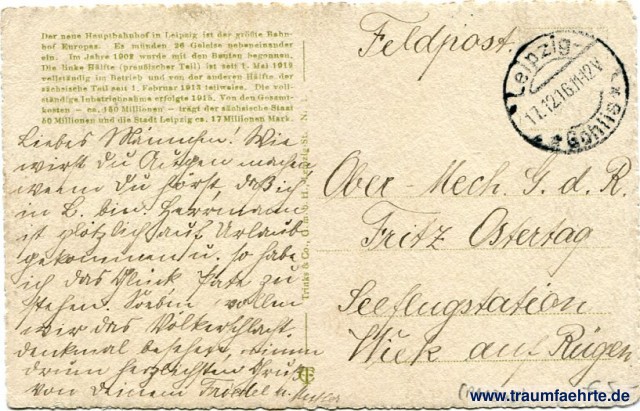 Der neue Hauptbahnhof in Leipzig ist der größte Bahn-
hof Europas. Es münden 26 Geleise nebeneinander
ein. Im Jahre 1902 wurde mit den Bauten begonnen.
Die linke Hälfte (preußischer Teil) ist seit 1. Mai 1912
vollständig im Betrieb und von der anderen Hälfte, der
sächsische Teil seit 1. Februar 1913 teilweise. Die voll-
ständige Inbetriebnahme erfolgte 1915. Von den Gesamt-
kosten — ca. 150 Millionen — trägt der sächsische Staat
50 Millionen und die Stadt Leipzig ca. 17 Millionen Mark.
Liebes Männchen! Wie
wirst Du Augen machen
wenn Du hörst, daß ich
in L. bin. Herrmann
ist plötzlich auf Urlaub
gekommen u. so habe
ich das Glück Pate zu
stehen. Soeben wollen
wir das Völkerschlacht-
denkmal besehen, nimm
drum herzlichsten Gruß
von Deinem Friedel u.
Trinks & Co., G. m. b. H., Leipzig-St. N. 1.
Feldpost.
Leipzig-
17.12.16.11-12V
* Gohlis *
Ober-Mech. G. d. R.
Fritz Ostertag
Seeflugstation
Wiek auf Rügen
www.traumfaehrte.de